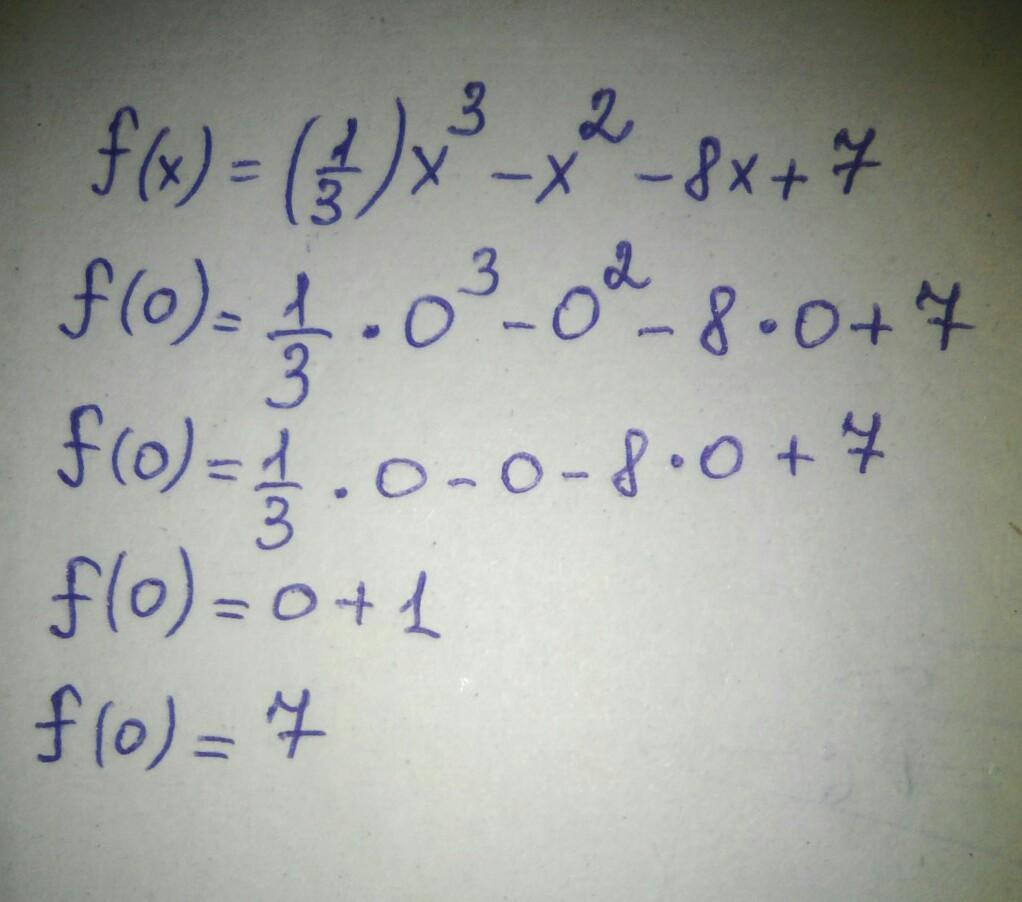 f(x) = (1/3)x³ - x² - 8x + 7
f(0) = 1/3 · 0³ - 0² - 8 · 0 + 7
f(0) = 1/3 · 0 - 0 - 8 · 0 + 7
f(0) = 0 + 1
f(0) = 7